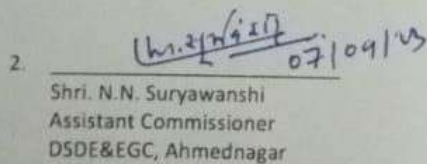 07/09/23
2.
Shri. N.N. Suryawanshi
Assistant Commissioner
DSDE&EGC, Ahmednagar